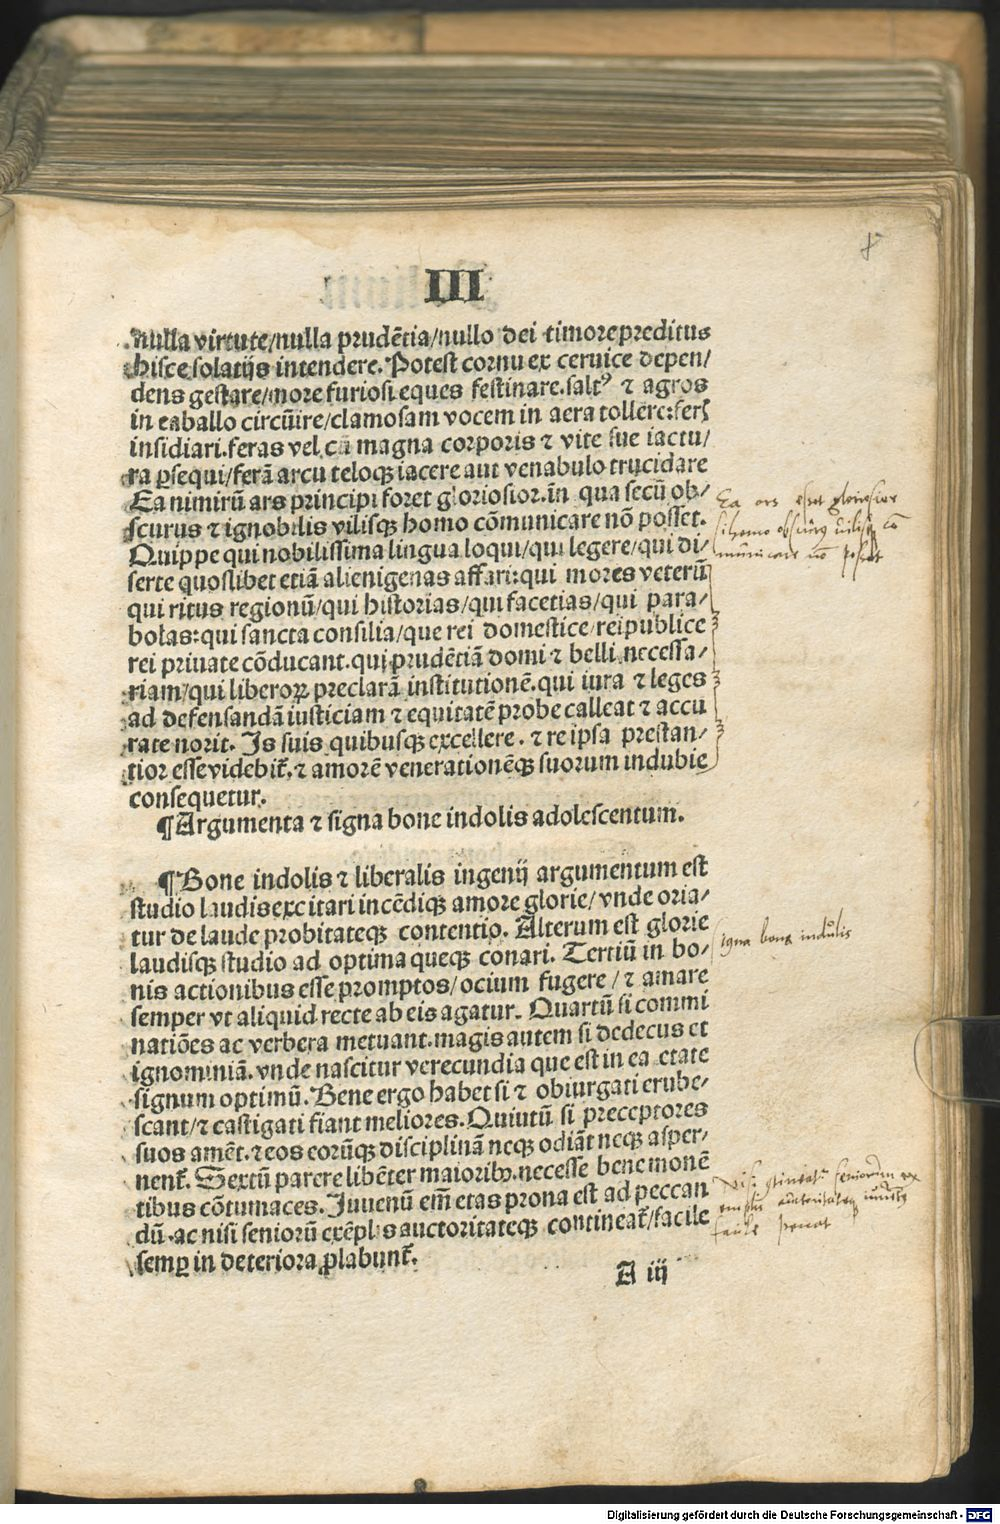 III
nulla virtute/nulla prudẽtia/nullo dei timore preditus
hisce solatijs intendere. Potest cornu ex ceruice depen/
dens gestare/more furiosi eques festinare. saltꝰ ⁊ agros
in caballo circũire/clamosam vocem in aera tollere: feris
insidiari. feras vel cũ magna corporis ⁊ vite sue iactu/
ra ꝑsequi/ferã arcu teloqꝫ iacere aut venabulo trucidare
Ea nimirũ ars principi foret gloriosior. in qua secũ ob/
scurus ⁊ ignobilis vilisqꝫ homo cõmunicare nõ posset.
Quippe qui nobilissima lingua loqui/qui legere/qui di/
serte quoslibet etiã alienigenas affari: qui mores veterũ
qui ritus regionũ/qui historias/qui facetias/qui para/
bolas: qui sancta consilia/que rei domestice/reipublice
rei priuate cõducant. qui prudẽtiã domi ⁊ belli necessa/
riam/qui liberoꝝ preclarã institutionẽ. qui iura ⁊ leges
ad defensandã iusticiam ⁊ equitatẽ probe calleat ⁊ accu
rate norit. Is suis quibusqꝫ excellere. ⁊ re ipsa prestan/
tior esse videbit̃. ⁊ amorẽ venerationẽqꝫ suorum indubie
consequetur.
¶Argumenta ⁊ signa bone indolis adolescentum.
¶Bone indolis ⁊ liberalis ingenij argumentum est
studio laudis excitari incẽdiqꝫ amore glorie/vnde oria/
tur de laude probitateqꝫ contentio. Alterum est glorie
laudisqꝫ studio ad optima queqꝫ conari. Tertiũ in bo/
nis actionibus esse promptos/ocium fugere/⁊ amare
semper vt aliquid recte ab eis agatur. Quartũ si commi
natiões ac verbera metuant. magis autem si dedecus et
ignominiã. vnde nascitur verecundia que est in ea etate
signum optimũ. Bene ergo habet si ⁊ obiurgati erube/
scant/⁊ castigati fiant meliores. Quiutũ si preceptores
suos amẽt. ⁊ eos eorũqꝫ disciplinã neqꝫ odiãt neqꝫ asper/
nent̃. Sextũ parere libẽter maioribꝰ. necesse bene monẽ
tibus cõtumaces. Iuuenũ em̃ etas prona est ad peccan
dũ. ac nisi seniorũ exẽplis auctoritateqꝫ contineat̃/facile
semꝑ in deteriora ꝓlabunt̃.
A iij
Ea ars esset gloriosior
si homo obscurꝰ vilisqꝫ cõ
municare nõ posset
Signa bone indolis
Nisi ꝯtineat̃ seniorum ex
emplis autoritateqꝫ
facile
Digitalisierung gefördert durch die Deutsche Forschungsgemeinschaft - DFG